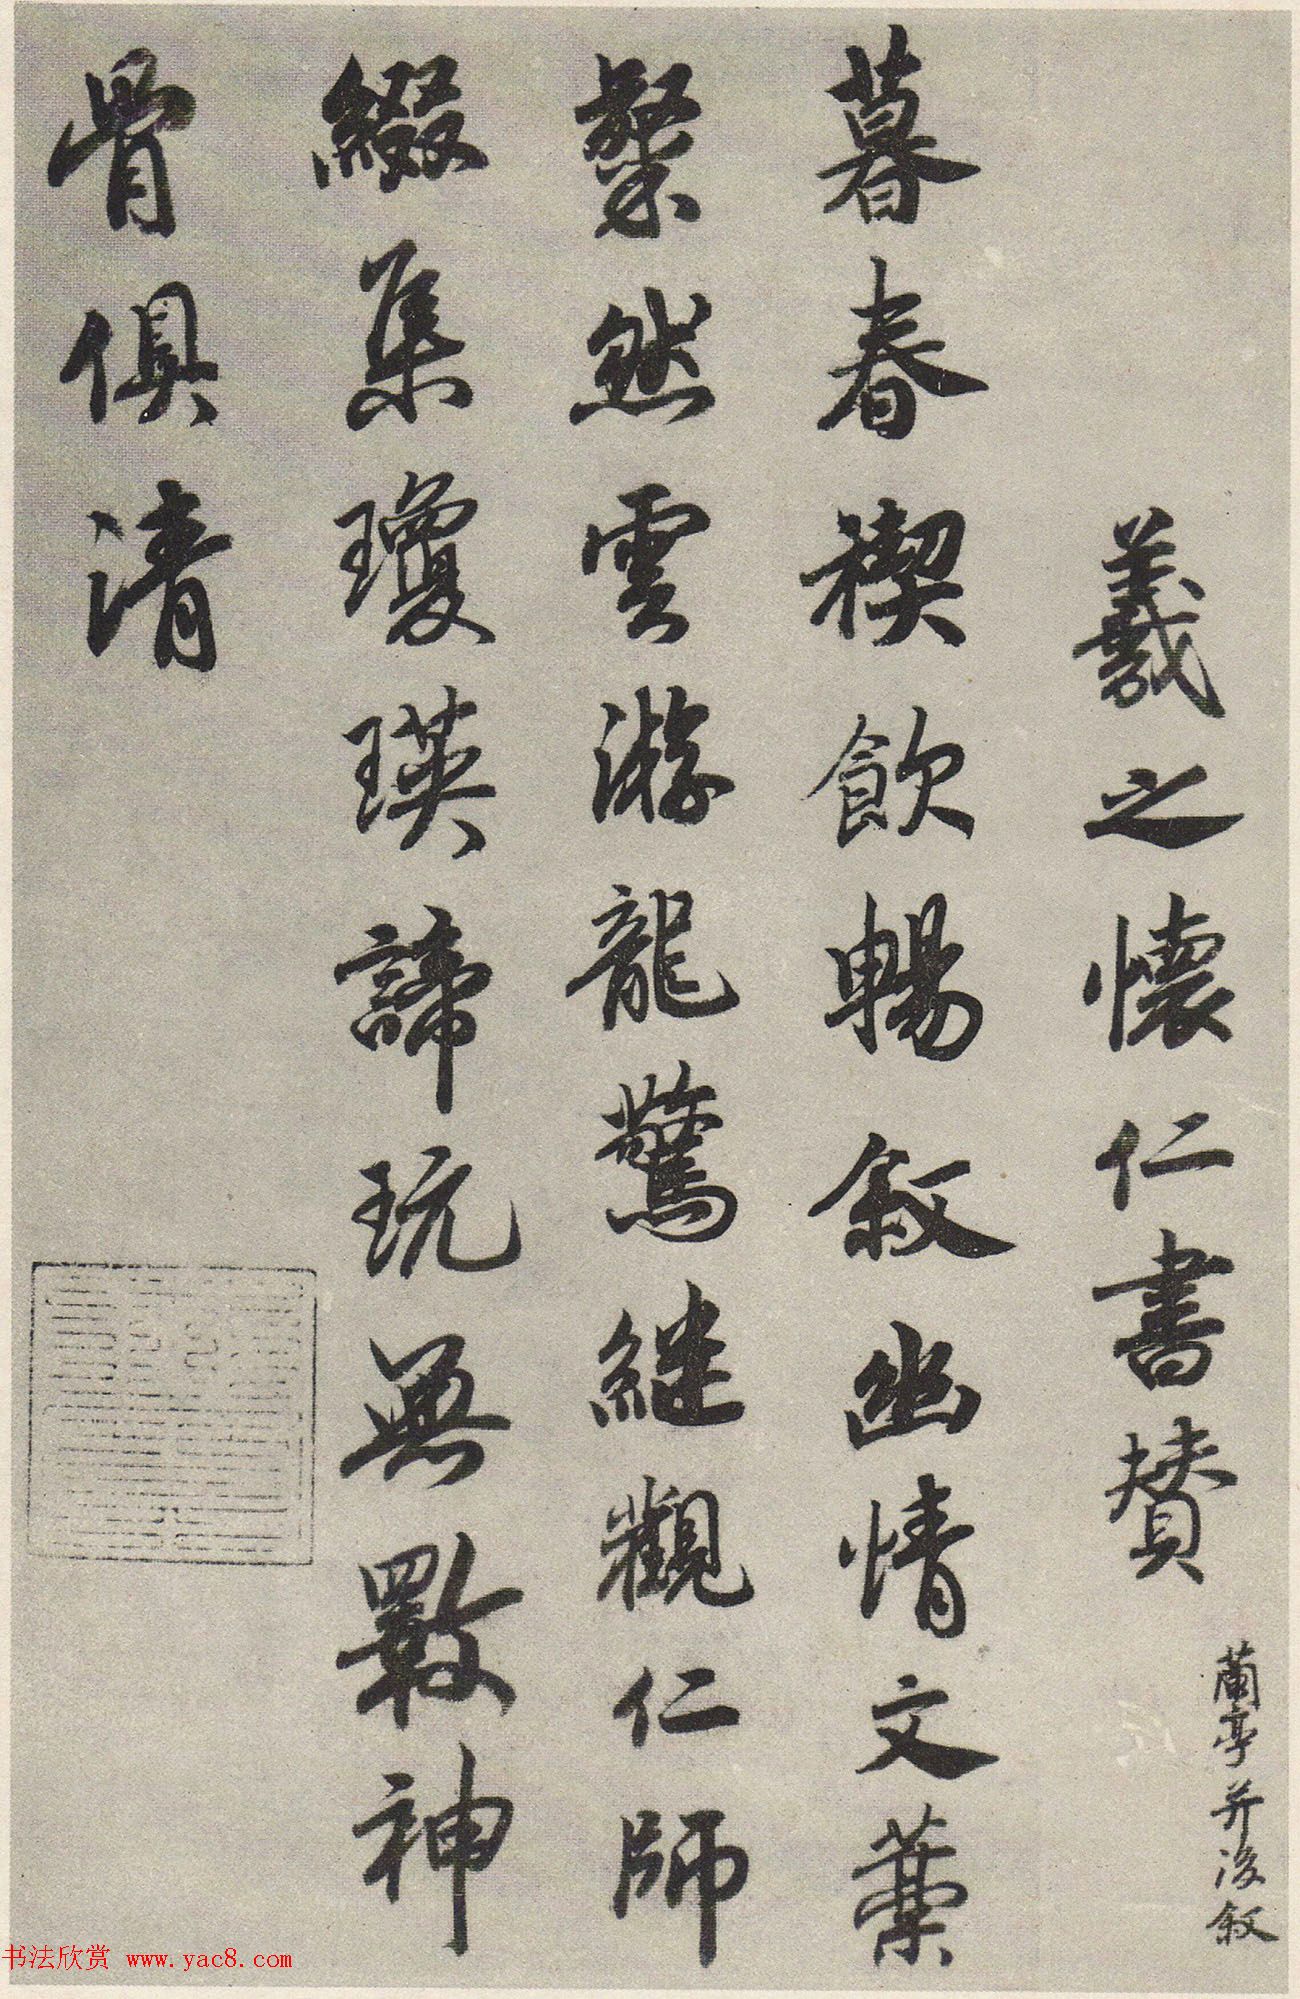 羲之懷仁書贊
蘭亭并後敘
暮春禊飲暢敘幽情文藁
粲然雲游龍驚繼觀仁師
綴集瓊瑛諦玩無斁神
骨俱清
书法欣赏 www.yac8.com